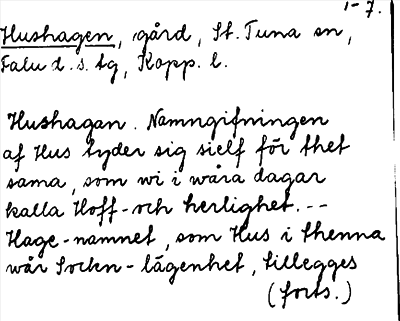 1-7.
Hushagen, gård, St. Tuna sn,
Falu d.s. tg, Kopp. l.
Hushagan. Namngifningen
af Hus tyder sig sielf för thet
sama, som wi i wåra dagar
kalla Hoff- och herlighet. --
Hage-namnet, som Hus i thenna
wår Sockn-lägenhet, tillegges
(forts.)